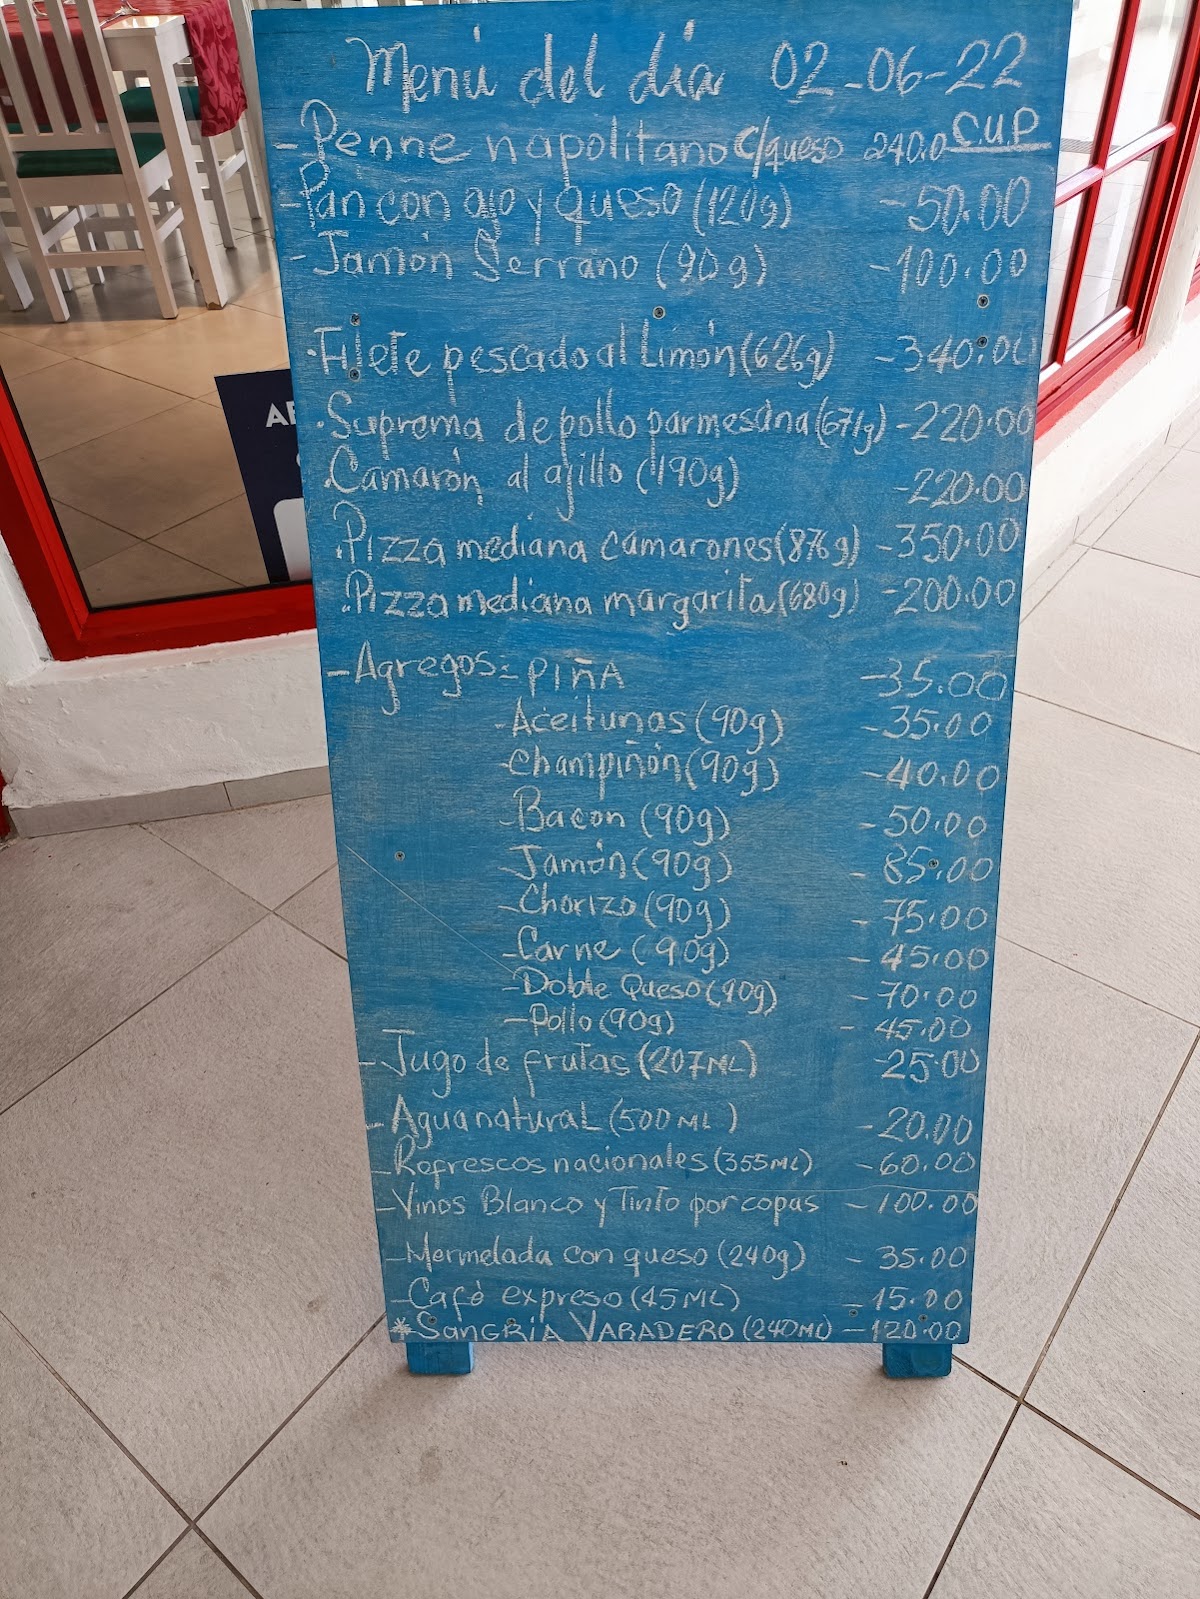 Menú del día 02-06-22
- Penne napolitano c/queso 240.0 C.U.P
- Pan con ajo y queso (120g) - 50.00
- Jamón Serrano (90g) - 100.00
. Filete pescado al Limón (626g) - 340.00
. Suprema de pollo parmesana (671g) - 220.00
. Camarón al ajillo (190g) - 220.00
. Pizza mediana camarones (876g) - 350.00
. Pizza mediana margarita (680g) - 200.00
- Agregos: PIÑA - 35.00
- Aceitunas (90g) - 35.00
- Champiñón (90g) - 40.00
- Bacon (90g) - 50.00
- Jamón (90g) - 85.00
- Chorizo (90g) - 75.00
- Carne (90g) - 45.00
- Doble Queso (90g) - 70.00
- Pollo (90g) - 45.00
- Jugo de frutas (207ML) - 25.00
- Agua natural (500ML) - 20.00
- Refrescos nacionales (355ML) - 60.00
- Vinos Blanco y Tinto por copas - 100.00
- Mermelada con queso (240g) - 35.00
- Café expreso (45ML) - 15.00
* SANGRIA VARADERO (240ML) - 120.00